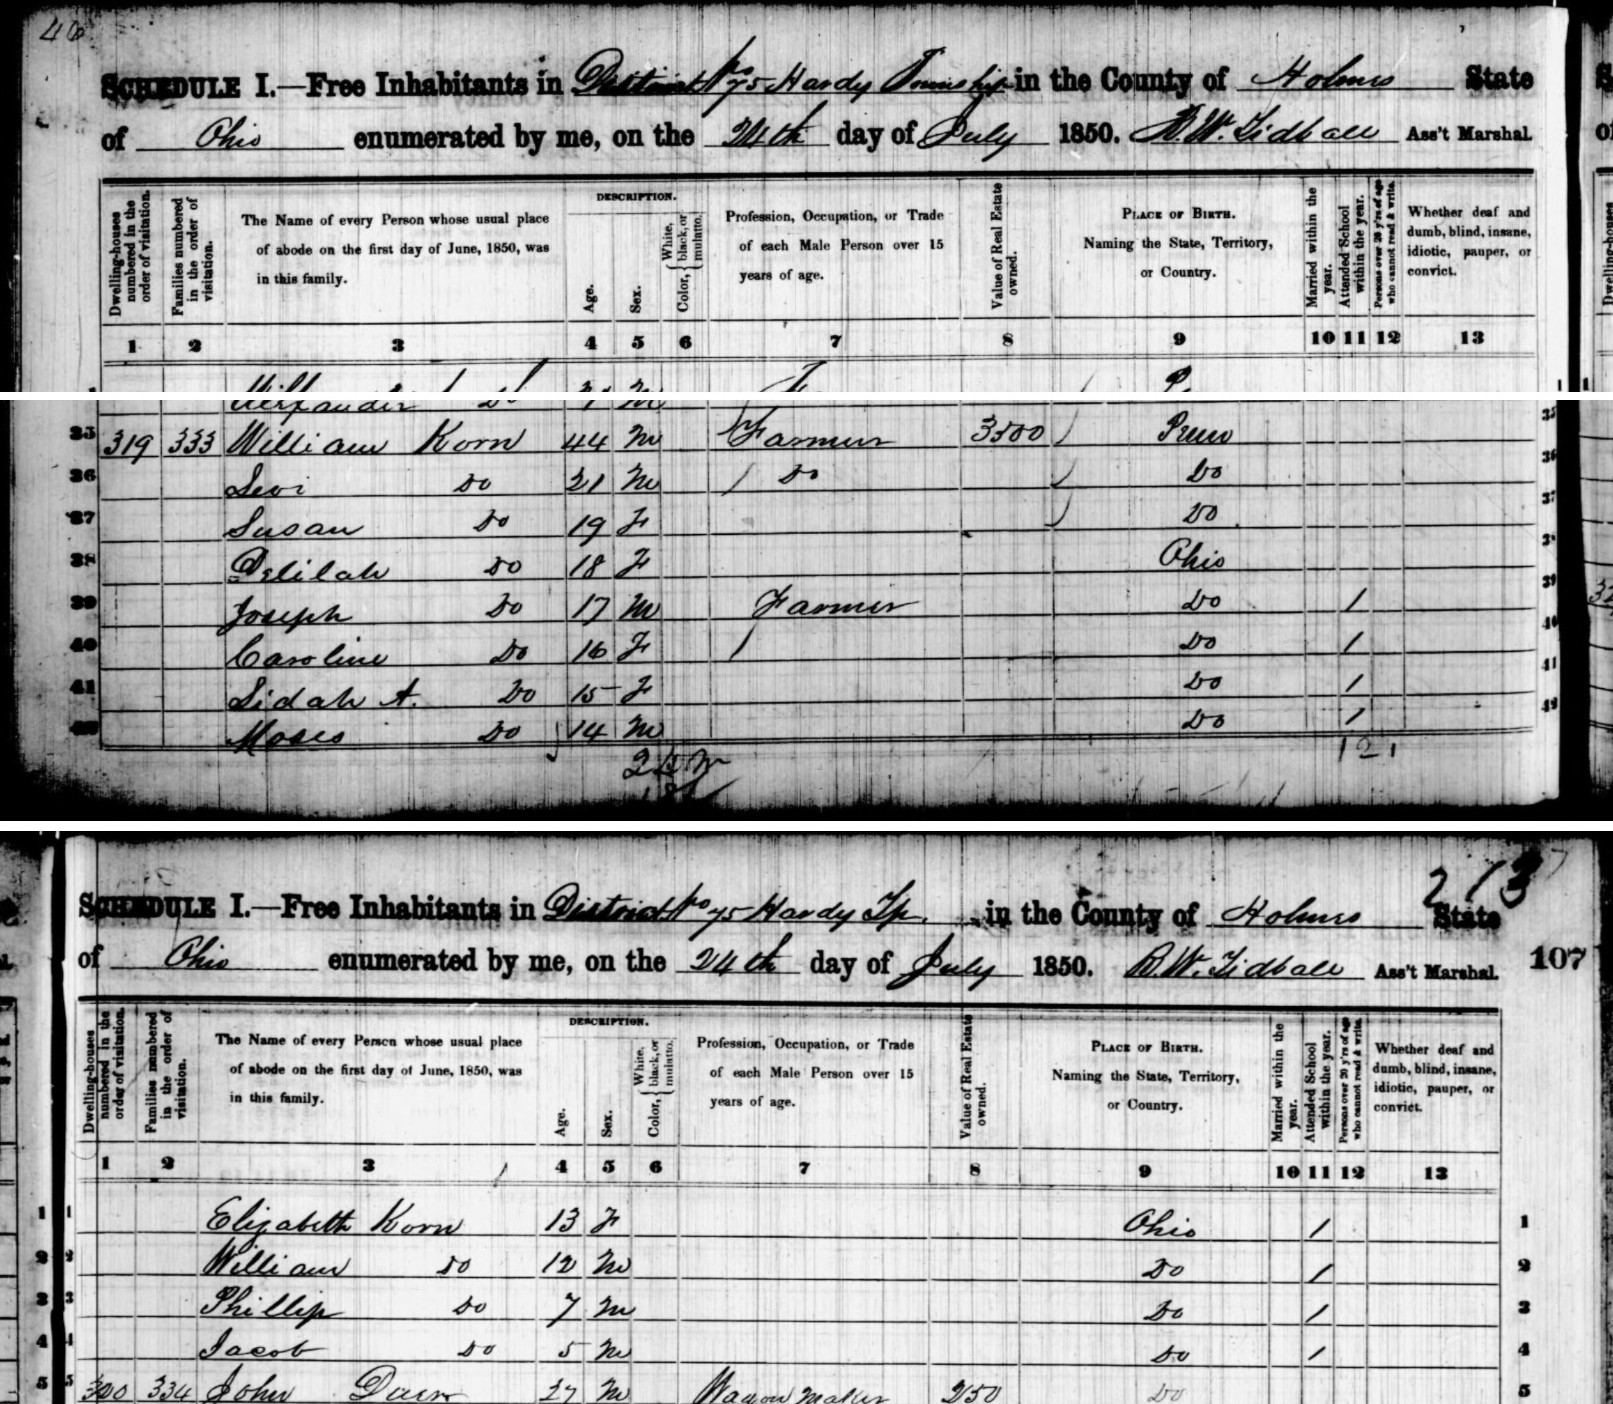 46
SCHEDULE I.—Free Inhabitants in District No 75 Hardy Township in the County of Holmes State
of Ohio enumerated by me, on the 24th day of July 1850. B. W. Tidball Ass't Marshal.
Dwelling-houses numbered in the order of visitation.
Families numbered in the order of visitation.
The Name of every Person whose usual place of abode on the first day of June, 1850, was in this family.
DESCRIPTION.
Age.
Sex.
Color, { White, black, or mulatto.
Profession, Occupation, or Trade of each Male Person over 15 years of age.
Value of Real Estate owned.
PLACE OF BIRTH. Naming the State, Territory, or Country.
Married within the year.
Attended School within the year.
Persons over 20 y'rs of age who cannot read & write.
Whether deaf and dumb, blind, insane, idiotic, pauper, or convict.
1 2 3 4 5 6 7 8 9 10 11 12 13
Alexander Do 1 M
35 319 333 William Korn 44 M Farmer 3500 Penn 35
36 Levi Do 21 M Do Do 36
37 Susan Do 19 F Do 37
38 Delilah Do 18 F Ohio 38
39 Joseph Do 17 M Farmer Do 1 39
40 Caroline Do 16 F Do 1 40
41 Lidah A. Do 15 F Do 1 41
42 Moses Do 14 M Do 1 42
24 M
18 F
213
SCHEDULE I.—Free Inhabitants in District No 75 Hardy Tp. in the County of Holmes State
of Ohio enumerated by me, on the 24th day of July 1850. B. W. Tidball Ass't Marshal. 107
Dwelling-houses numbered in the order of visitation.
Families numbered in the order of visitation.
The Name of every Person whose usual place of abode on the first day of June, 1850, was in this family.
DESCRIPTION.
Age.
Sex.
Color, { White, black, or mulatto.
Profession, Occupation, or Trade of each Male Person over 15 years of age.
Value of Real Estate owned.
PLACE OF BIRTH. Naming the State, Territory, or Country.
Married within the year.
Attended School within the year.
Persons over 20 y'rs of age who cannot read & write.
Whether deaf and dumb, blind, insane, idiotic, pauper, or convict.
1 2 3 4 5 6 7 8 9 10 11 12 13
1 1 Elizabeth Korn 13 F Ohio 1 1
2 2 William Do 12 M Do 1 2
3 3 Phillip Do 7 M Do 1 3
4 4 Jacob Do 5 M Do 1 4
5 5 320 334 John 27 M Wagon Maker 250 Do 5